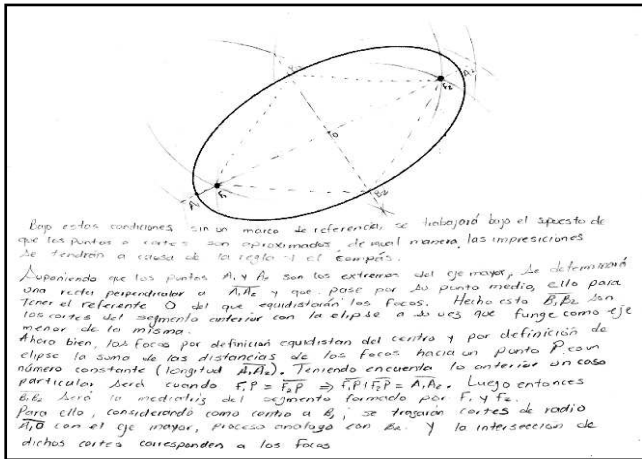 F2
A2
O
F1
A1
B2
Bajo estas condiciones sin un marco de referencia, se trabajará bajo el supuesto de
que los puntos o cortes son aproximados, de igual manera, las impresiciones
se tendrán a causa de la regla y el compás.
Suponiendo que los puntos A1 y A2 son los extremos del eje mayor, se determinará
una recta perpendicular a A1A2 y que pase por su punto medio, ello para
tener el referente O del que equidistarán los focos. Hecho esto B1B2 son
los cortes del segmento anterior con la elipse a su vez que funge como eje
menor de la misma.
Ahora bien, los focos por definición equidistan del centro y por definición de
elipse la suma de las distancias de los focos hacia un punto P, es un
número constante (longitud A1A2). Teniendo encuenta lo anterior un caso
particular será cuando F1P = F2P ⇒ F1P + F2P = A1A2. Luego entonces
B1B2 será la mediatriz del segmento formado por F1 y F2.
Para ello, considerando como centro a B1, se trazarán cortes de radio
A1O con el eje mayor, proceso analogo con B2. Y la intersección de
dichos cortes corresponden a los focos